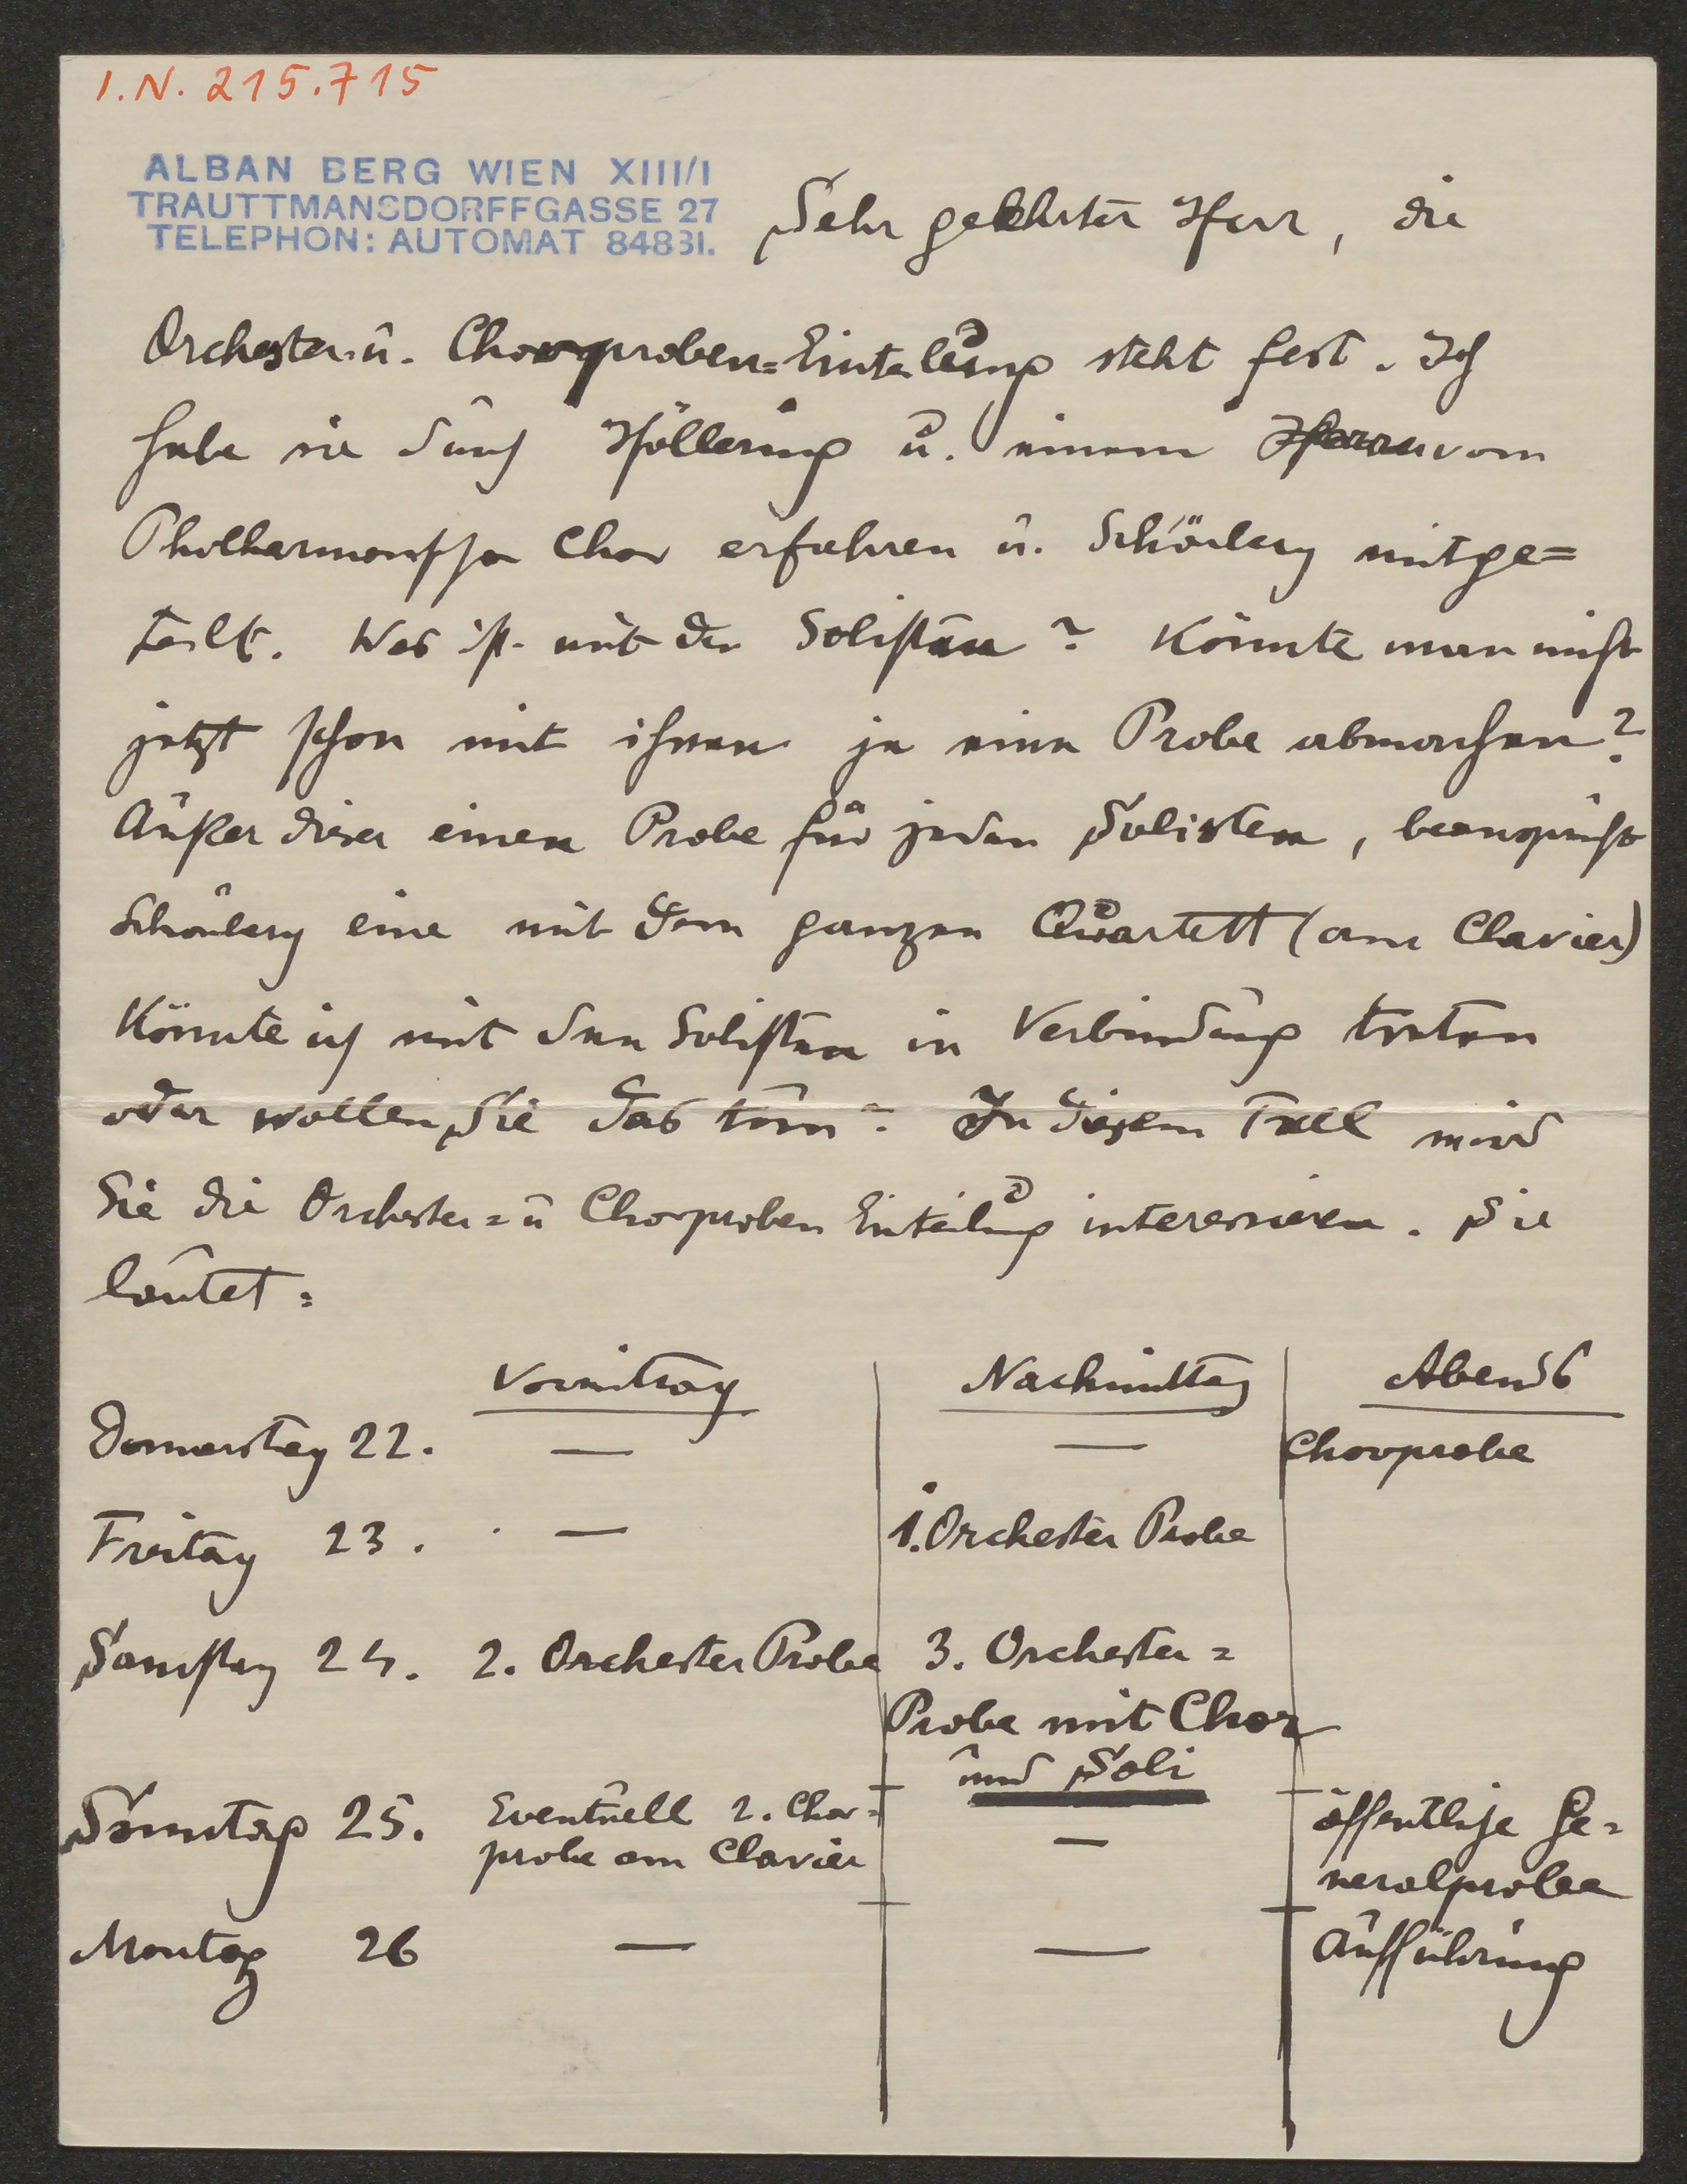 I.N. 215.715
ALBAN BERG WIEN XIII/1
TRAUTTMANSDORFFGASSE 27
TELEPHON: AUTOMAT 84831.
Sehr geehrter Herr, die
Orchester u. Chorproben=Einteilung steht fest. Ich
habe sie durch Höllering u. einem Herren vom
Philharmonischen Chor erfahren u. Schönberg mitge=
teilt. Was ist mit den Solisten? Könnte man nicht
jetzt schon mit ihnen je eine Probe abmachen?
Außer dieser einen Probe für jeden Solisten, beansprucht
Schönberg eine mit dem ganzen Quartett (am Clavier)
Könnte ich mit den Solisten in Verbindung treten
oder wollen Sie das tun? In diesem Fall wird
Sie die Orchester= u Chorproben Einteilung interessieren. Sie
lautet:
Vormittag Nachmittag Abends
Donnerstag 22. — — Chorprobe
Freitag 23. — 1. Orchester Probe
Samstag 24. 2. Orchester Probe 3. Orchester=
Probe mit Chor
und Soli
Sonntag 25. Eventuell 2. Chor= — öffentliche Ge=
probe am Clavier neralprobe
Montag 26 — — Aufführung